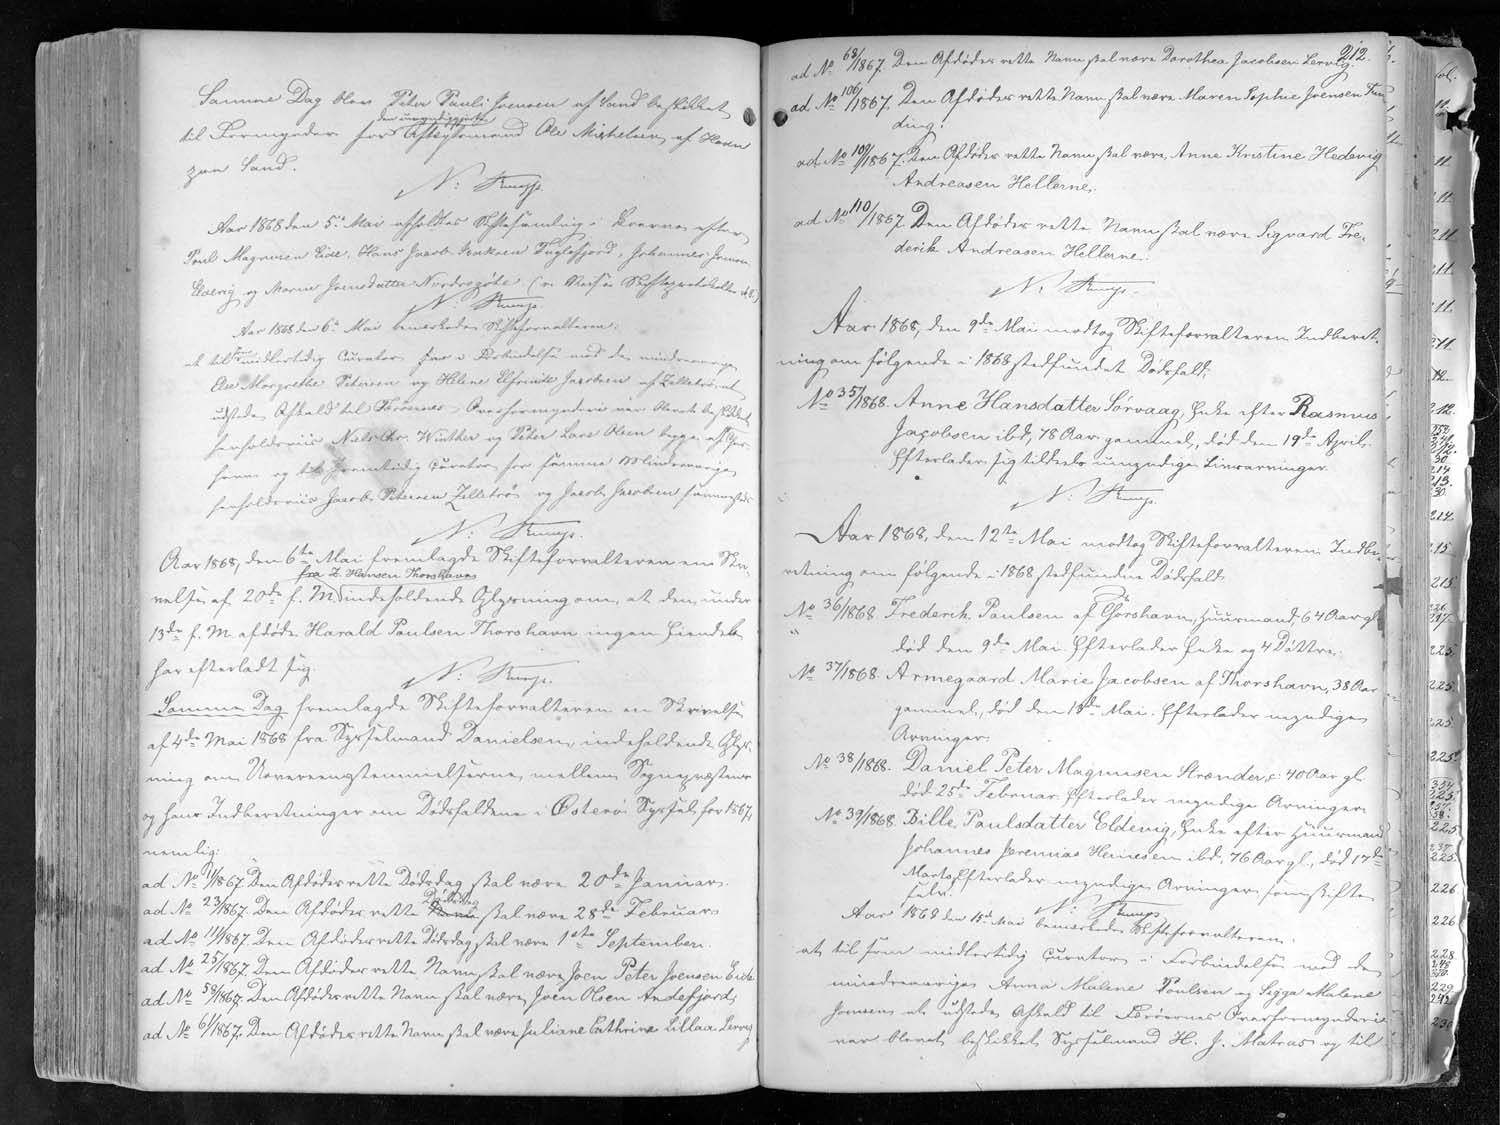 Samme Dag blev Peter Pauli Joensen af Sand beskikket
til Formynder for den umyndiggjorte Aftægtsmand Ole Michelsen af Heden
paa Sand.
N: Krupp.
Aar 1868 den 5te Mai afholdtes Skiftesamling i efter
Poul Magnusen Eide, Hans Jacob Isaksen Fuglefjord, Johannes Joensen
Eldevig og Maren Joensdatter Nordregøte (vi Skifteprotokollen )
N: Krupp.
Aar 1868 den 6te Mai bemærkedes Skifteforvalteren:
at til som midlertidig Curator for i Forbindelse med de mindreaarige
Else Margrethe Petersen og Helene Elfrinde Jacobsen af Zelletrø at
udstede Afkald til Færøernes Overformynderi var blevet beskikket
henholdsviis Niels Chr. Winther og Peter Lars Olsen begge af Thors-
havn og til fremtidig Curator for samme Mindreaarige
henholdsviis Jacob Petersen Zelletrø og Jacob Jacobsen sammesteds
N: Krupp.
Aar 1868, den 6te Mai fremlagde Skifteforvalteren en Skri-
fra Z. Hansen Thorshavn
velse af 20de f. M. indeholdende Oplysning om, at den under
13de f. M. afdøde Harald Paulsen Thorshavn ingen Eiendele
har efterladt sig.
N: Krupp.
Samme Dag fremlagde Skifteforvalteren en Skrivelse
af 4de Mai 1868 fra Sysselmand Danielsen, indeholdende Oplys-
ning om Uovereensstemmelserne mellem Sognepræstens
og hans Indberetninger om Dødsfaldene i Østerø Syssel for 1867,
nemlig:
ad No 11/1867. Den Afdødes rette Dødsdag skal være 20de Januar.
ad No 23/1867. Den Afdødes rette Dødsdag skal være 28de Februar
ad No 11/1867. Den Afdødes rette Dødsdag skal være 1ste September.
ad No 25/1867. Den Afdødes rette Navn skal være Joen Peter Joensen Eide
ad No 58/1867. Den Afdødes rette Navn skal være Joen Olsen Andefjord,
ad No 61/1867. Den Afdødes rette Navn skal være Juliane Cathrine Lillaa Lervig
212.
ad No 68/1867. Den Afdødes rette Navn skal være Dorothea Jacobsen Lervig.
ad No 106/1867. Den Afdødes rette Navn skal være Maren Sophie Joensen Fun-
ding.
ad No 109/1867. Den Afdødes rette Navn skal være Anne Kristine Hedevig
Andreasen Hellerne.
ad No 110/1867 Den Afdødes rette Navn skal være Sigvard Fre-
derik Andreasen Hellerne.
N: Krupp.
Aar 1868, den 9de Mai modtog Skifteforvalteren Indberet-
ning om følgende i 1868 stedfundet Dødsfald:
No 35/1868. Anne Hansdatter Sørvaag, Enke efter Rasmus
Jacobsen ibd., 78 Aar gammel, død den 19de April.
Efterlader sig tildeels umyndige Livsarvinger.
N: Krupp.
Aar 1868, den 12te Mai modtog Skifteforvalteren Indbe-
retning om følgende i 1868 stedfundne Dødsfald
No 36/1868. Frederik Paulsen af Thorshavn, Huusmand 64 Aar gl.
død den 9de Mai. Efterlader Enke og 4 Døttre.
No 37/1868. Armegaard Marie Jacobsen af Thorshavn, 38 Aar
gammel, død den 13de Mai. Efterlader myndige
Arvinger.
No 38/1868. Daniel Peter Magnusen Strænder, c: 40 Aar gl.
død 25de Februar. Efterlader myndige Arvinger
No 39/1868. Bille Paulsdatter Eldevig, Enke efter Huusmand
Johannes Jeremias Heinesen ibd., 76 Aar gl., død 17de
Marts. Efterlader myndige Arvinger som skifte
selv.
N: Krupp
Aar 1868 den 15de Mai bemærkedes Skifteforvalteren:
at til som midlertidig Curator i Forbindelse med de
mindreaarige Anna Malene Poulsen og Sigga Malene
Joensen at udstede Afkald til Færøernes Overformynderi
var blevet beskikket Sysselmand H. J. Matras og til